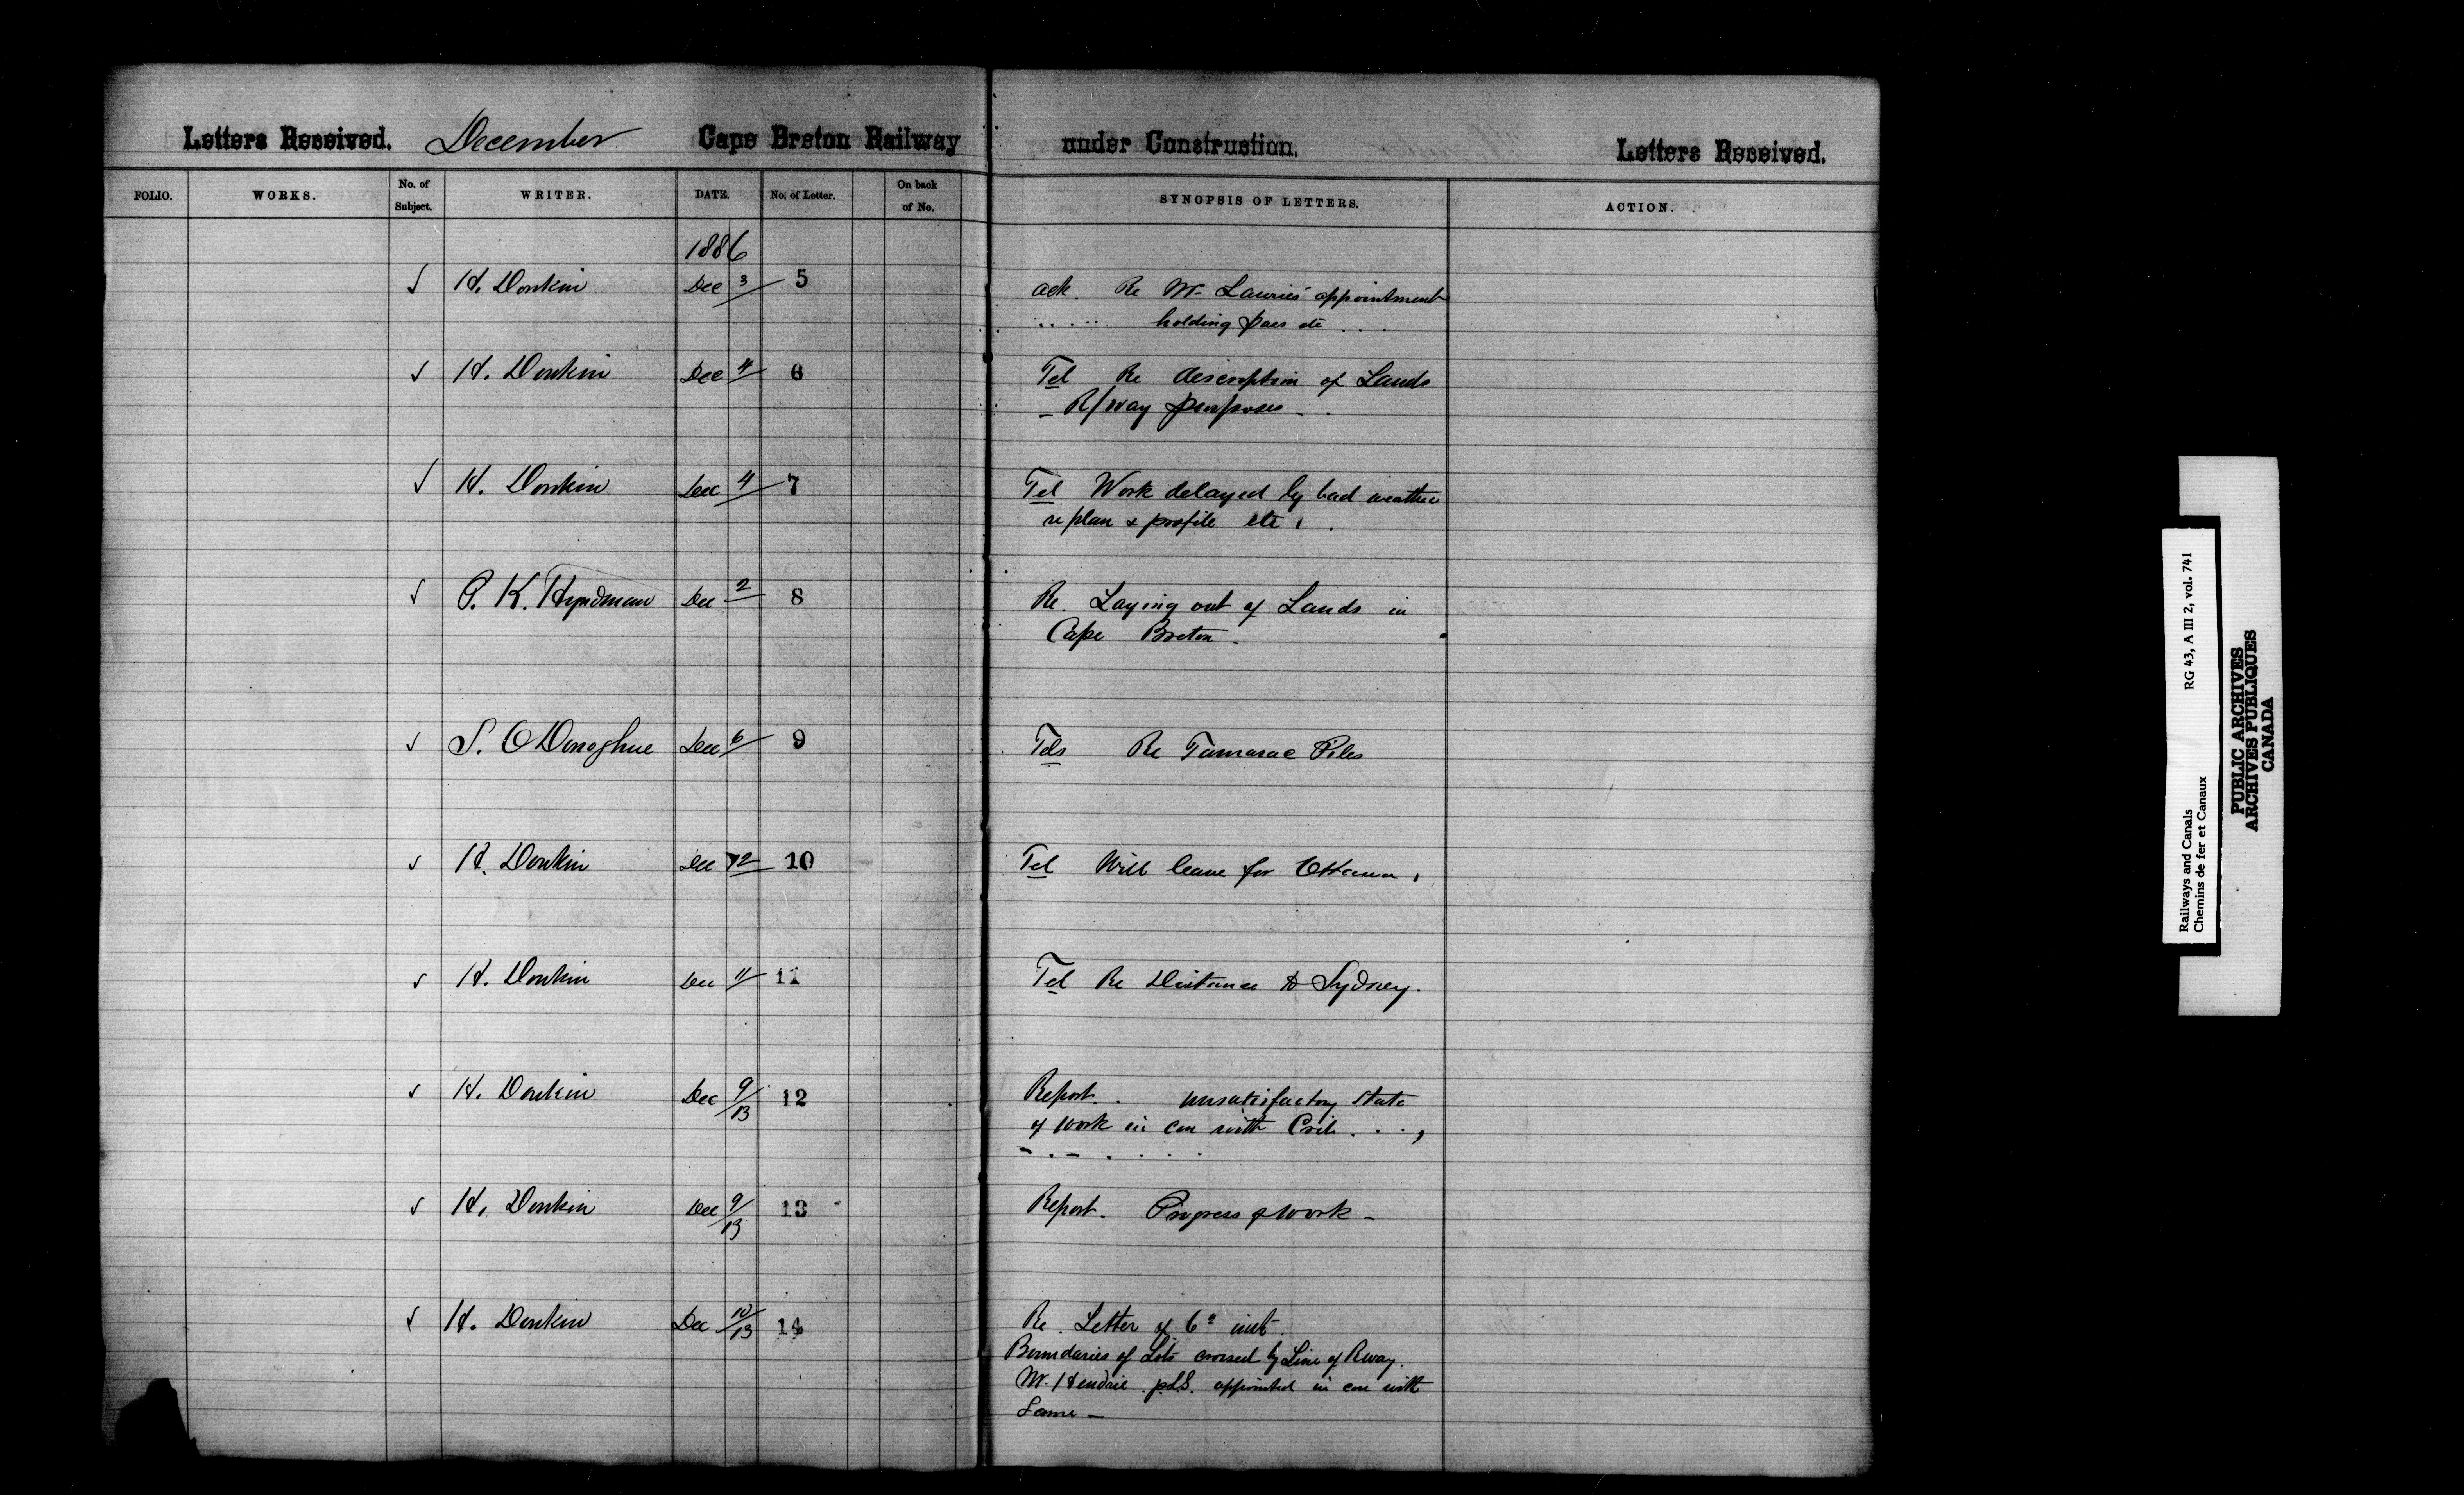 Letters Received. December Cape Breton Railway under Construction. Letters Received.
FOLIO. WORKS. No. of Subject. WRITER. DATE. No. of Letter. On back of No. SYNOPSIS OF LETTERS. ACTION.
1886
✓ H. Donkin Dec 3 5 ack. Re Mr. Lauries' appointment
holding pass etc
✓ H. Donkin Dec 4 6 Tel Re description of Lands
R/way purposes
✓ H. Donkin Dec 4 7 Tel Work delayed by bad weather
re plan & profile etc
✓ P. K. Hyndman Dec 2 8 Re. Laying out of Lands in
Cape Breton
✓ S. O Donoghue Dec 6 9 Tels Re Tamarac Piles
✓ H. Donkin Dec 12 10 Tel Will leave for Ottawa
✓ H. Donkin Dec 11 11 Tel Re Distance to Sydney.
✓ H. Donkin Dec 9/13 12 Report. unsatisfactory state
of work in con with
✓ H. Donkin Dec 9/13 13 Report. Progress of work -
✓ H. Donkin Dec 10/13 14 Re. Letter of 6th inst.
Boundaries of Lots crossed by Line of Rway.
Mr. Hendrie P.L.S. appointed in con with
Same -
Railways and Canals RG 43, A III 2, vol. 741
Chemins de fer et Canaux
PUBLIC ARCHIVES
ARCHIVES PUBLIQUES
CANADA